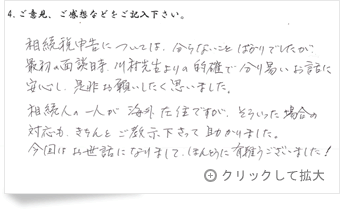 4.ご意見、ご感想などをご記入下さい。
相続税申告については、分らないことばかりでしたが、
最初の面談時、川村先生よりの的確で分り易いお話に
安心し、是非お願いしたく思いました。
相続人の一人が海外在住ですが、そういった場合の
対応も、きちんとご教示下さって助かりました。
今回はお世話になりまして、ほんとうに有難うございました！
クリックして拡大